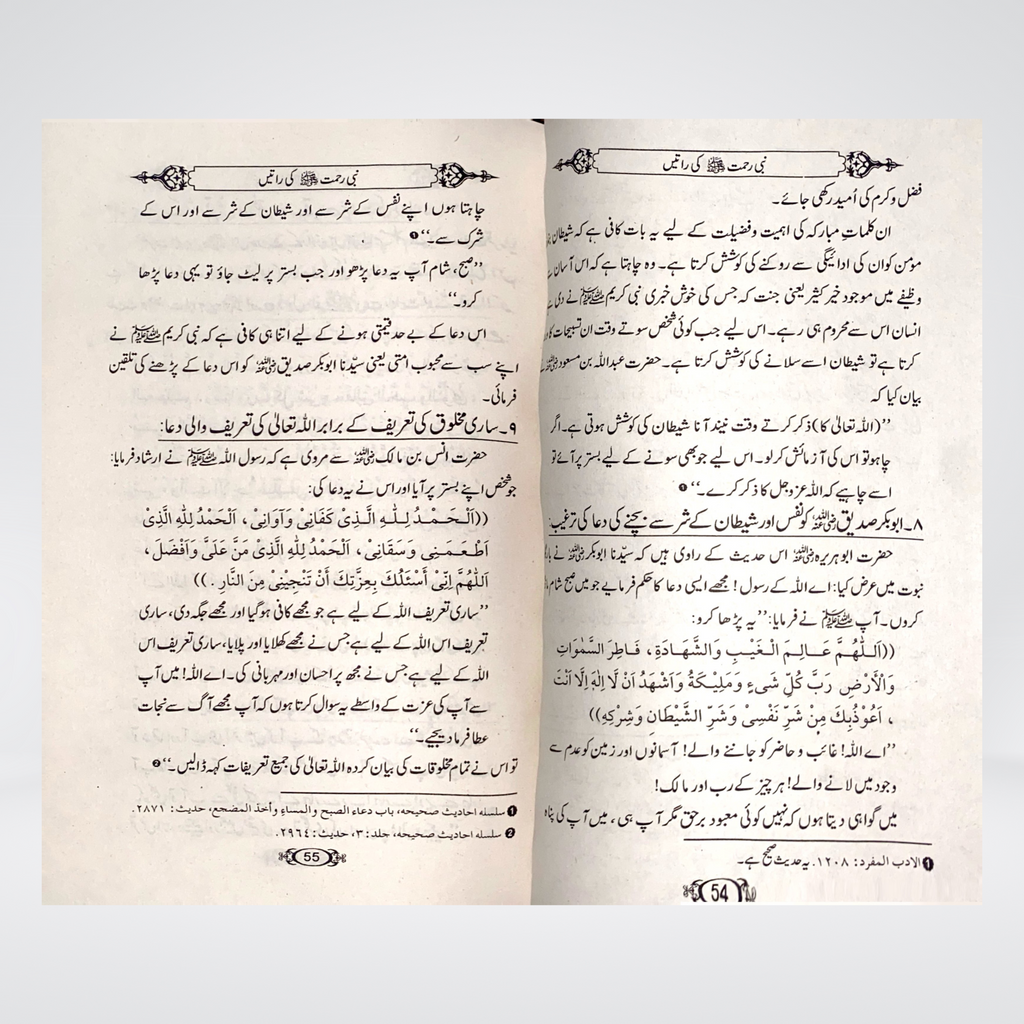 نبی رحمت ﷺ کی راتیں
فضل و کرم کی اُمید رکھی جائے۔
ان کلماتِ مبارکہ کی اہمیت وفضیلت کے لیے یہ بات کافی ہے کہ شیطان
مؤمن کو ان کی ادائیگی سے روکنے کی کوشش کرتا ہے۔ وہ چاہتا ہے کہ اس آسان سے
وظیفے میں موجود خیر کثیر یعنی جنت کہ جس کی خوش خبری نبی کریم ﷺ نے دی ہے
انسان اس سے محروم ہی رہے۔ اس لیے جب کوئی شخص سوتے وقت ان تسبیحات کا
کرتا ہے تو شیطان اسے سلانے کی کوشش کرتا ہے۔ حضرت عبداللہ بن مسعود رضی اللہ عنہ
بیان کیا کہ
’’(اللہ تعالیٰ کا) ذکر کرتے وقت نیند آنا شیطان کی کوشش ہوتی ہے۔ اگر
چاہو تو اس کی آزمائش کرلو۔ اس لیے جو بھی سونے کے لیے بستر پر آئے تو
اسے چاہیے کہ اللہ عزوجل کا ذکر کرے۔‘‘ ❶
۸۔ ابوبکر صدیق رضی اللہ عنہ کو نفس اور شیطان کے شر سے بچنے کی دعا کی ترغیب:
حضرت ابو ہریرہ رضی اللہ عنہ اس حدیث کے راوی ہیں کہ سیّدنا ابوبکر رضی اللہ عنہ نے
نبوت میں عرض کیا: اے اللہ کے رسول! مجھے ایسی دعا کا حکم فرمایے جو میں صبح شام
کروں۔ آپ ﷺ نے فرمایا: ’’یہ پڑھا کرو:
((اَللّٰهُمَّ عَالِمَ الْغَيْبِ وَالشَّهَادَةِ ، فَاطِرَ السَّمٰوٰتِ
وَالْاَرْضِ رَبَّ كُلِّ شَيْءٍ وَمَلِيْكَهُ وَاَشْهَدُ اَنْ لَا اِلٰهَ اِلَّا اَنْتَ
، اَعُوْذُبِكَ مِنْ شَرِّ نَفْسِيْ وَشَرِّ الشَّيْطَانِ وَشِرْكِهِ))
’’اے اللہ! غائب و حاضر کو جاننے والے! آسمانوں اور زمین کو عدم سے
وجود میں لانے والے! ہر چیز کے رب اور مالک!
میں گواہی دیتا ہوں کہ نہیں کوئی معبود برحق مگر آپ ہی ، میں آپ کی پناہ
❶ الادب المفرد: ۱۲۰۸۔ یہ حدیث صحیح ہے۔
54
نبی رحمت ﷺ کی راتیں
چاہتا ہوں اپنے نفس کے شر سے اور شیطان کے شر سے اور اس کے
شرک سے۔‘‘ ❶
’’صبح، شام آپ یہ دعا پڑھو اور جب بستر پر لیٹ جاؤ تو یہی دعا پڑھا
کرو۔‘‘
اس دعا کے بے حد قیمتی ہونے کے لیے اتنا ہی کافی ہے کہ نبی کریم ﷺ نے
اپنے سب سے محبوب امتی یعنی سیّدنا ابوبکر صدیق رضی اللہ عنہ کو اس دعا کے پڑھنے کی تلقین
فرمائی۔
۹۔ ساری مخلوق کی تعریف کے برابر اللہ تعالیٰ کی تعریف والی دعا:
حضرت انس بن مالک رضی اللہ عنہ سے مروی ہے کہ رسول اللہ ﷺ نے ارشاد فرمایا:
جو شخص اپنے بستر پر آیا اور اس نے یہ دعا کی:
((اَلْحَمْدُ لِلّٰهِ الَّذِيْ كَفَانِيْ وَآوَانِيْ ، اَلْحَمْدُ لِلّٰهِ الَّذِيْ
اَطْعَمَنِيْ وَسَقَانِيْ ، اَلْحَمْدُ لِلّٰهِ الَّذِيْ مَنَّ عَلَيَّ وَاَفْضَلَ ،
اَللّٰهُمَّ اِنِّيْ اَسْئَلُكَ بِعِزَّتِكَ اَنْ تَنْجِيْنِيْ مِنَ النَّارِ . ))
’’ساری تعریف اللہ کے لیے ہے جو مجھے کافی ہوگیا اور مجھے جگہ دی، ساری
تعریف اس اللہ کے لیے ہے جس نے مجھے کھلایا اور پلایا، ساری تعریف اس
اللہ کے لیے ہے جس نے مجھ پر احسان اور مہربانی کی۔ اے اللہ! میں آپ
سے آپ کی عزت کے واسطے یہ سوال کرتا ہوں کہ آپ مجھے آگ سے نجات
عطا فرما دیجیے۔‘‘
تو اس نے تمام مخلوقات کی بیان کردہ اللہ تعالیٰ کی جمیع تعریفات کہہ ڈالیں۔‘‘ ❷
❶ سلسله احادیث صحیحه، باب دعاء الصبح والمساءِ وأخذ المضجع، حدیث: ۲۸۷۱.
❷ سلسله احادیث صحیحه، جلد: ۳، حدیث: ۲۹٦٤.
55